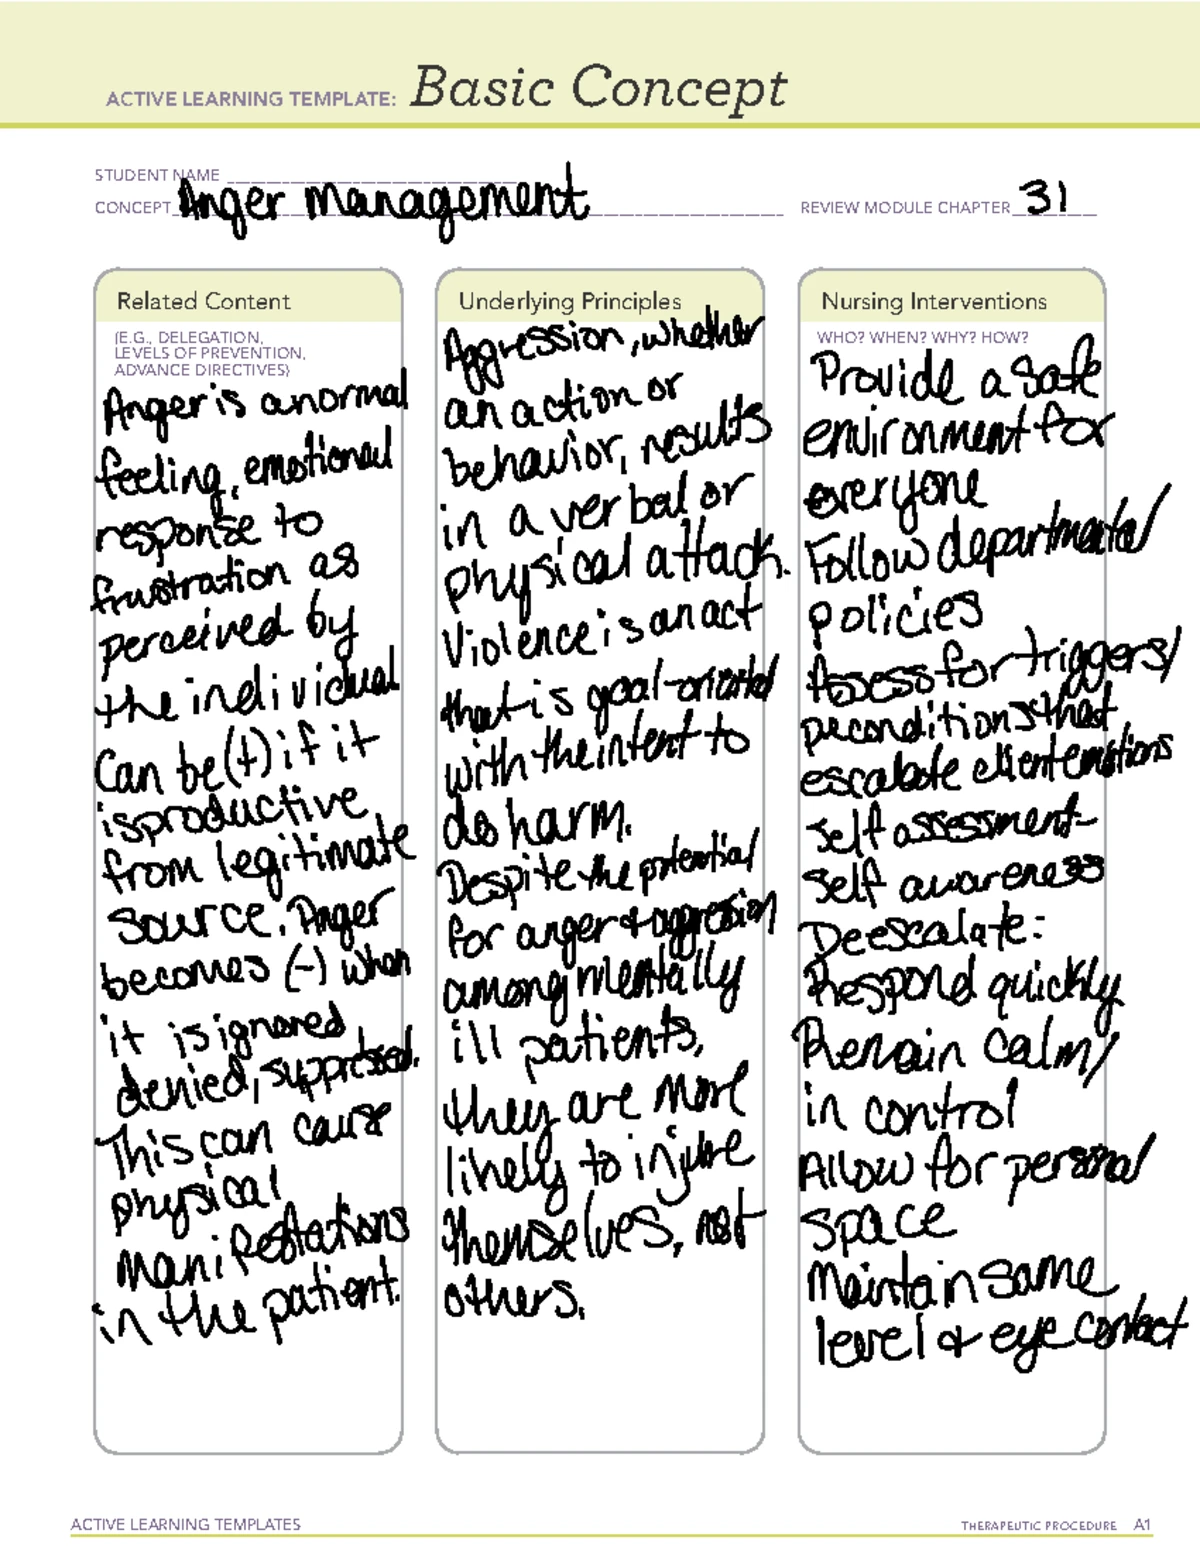 ACTIVE LEARNING TEMPLATE: Basic Concept
STUDENT NAME
CONCEPT Anger Management REVIEW MODULE CHAPTER 31
Related Content
(E.G., DELEGATION,
LEVELS OF PREVENTION,
ADVANCE DIRECTIVES)
Anger is a normal
feeling, emotional
response to
frustration as
perceived by
the individual
Can be (+) if it
is productive
from legitimate
source. Anger
becomes (-) when
it is ignored
denied, suppressed.
This can cause
physical
manifestations
in the patient.
Underlying Principles
Aggression, whether
an action or
behavior, results
in a verbal or
physical attack.
Violence is an act
that is goal-oriented
with the intent to
do harm.
Despite the potential
for anger & aggression
among mentally
ill patients,
they are more
likely to injure
themselves, not
others.
Nursing Interventions
WHO? WHEN? WHY? HOW?
Provide a safe
environment for
everyone
Follow departmental
policies
Assess for triggers/
preconditions that
escalate client emotions
Self assessment-
Self awareness
Deescalate:
Respond quickly
Remain calm/
in control
Allow for personal
space
Maintain same
level & eye contact
ACTIVE LEARNING TEMPLATES
THERAPEUTIC PROCEDURE A1